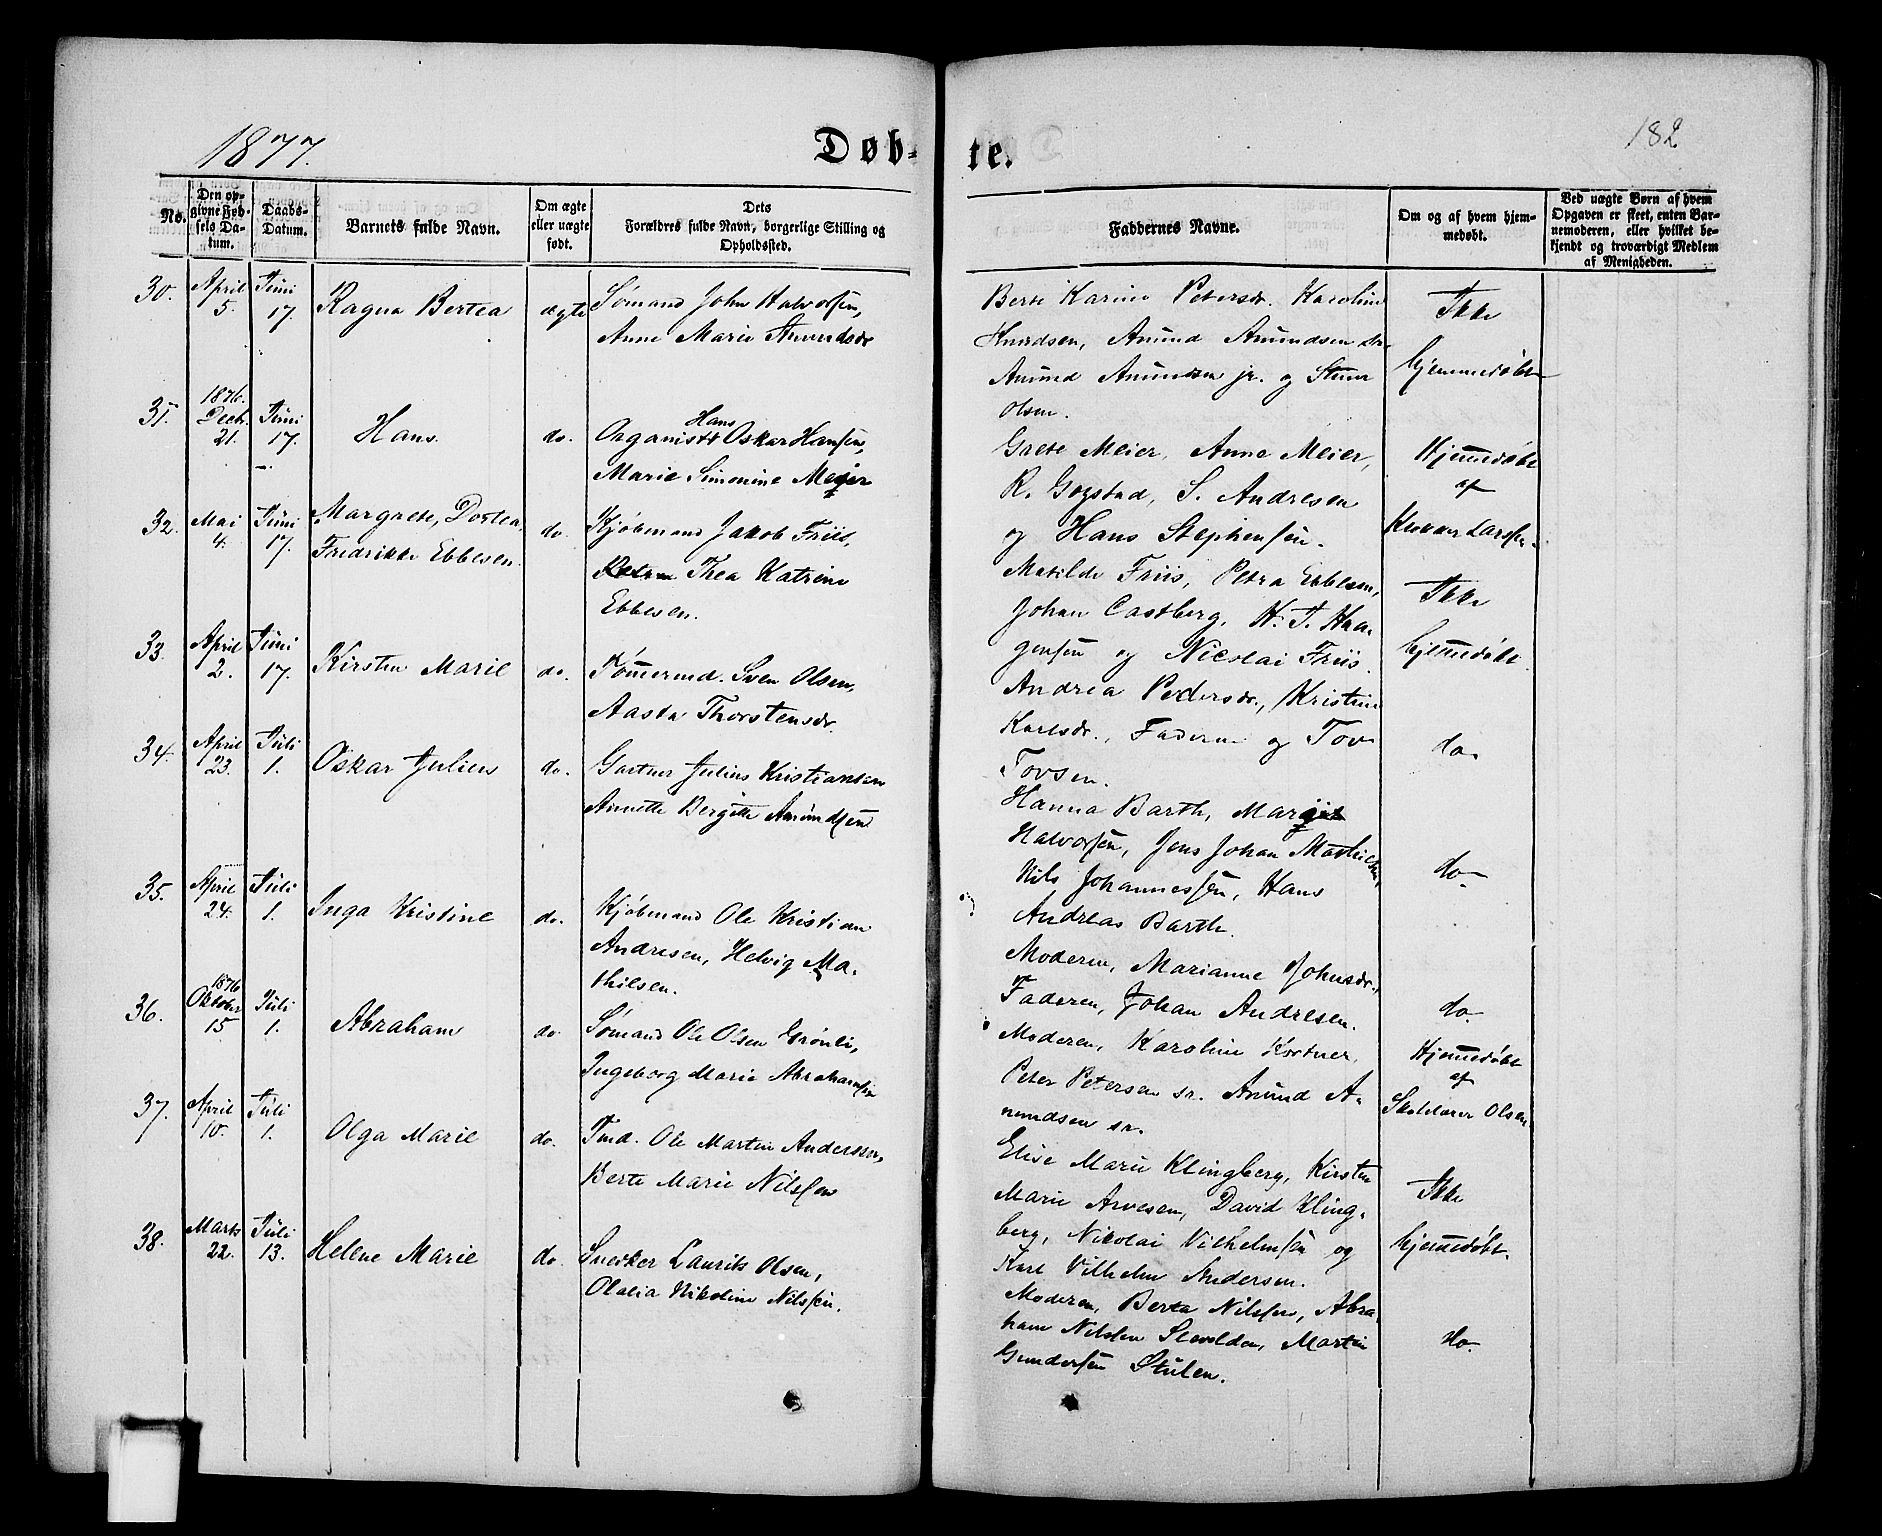 1877.
Døb-
te.
182
No.
Den op-
givne Fød-
sels Da-
tum.
Daabs-
Datum.
Barnets fulde Navn.
Om ægte
eller uægte
født.
Dets
Forældres fulde Navn, borgerlige Stilling og
Opholdssted.
Faddernes Navne.
Om og af hvem hjem-
medøbt.
Ved uægte Børn af hvem
Opgaven er skeet, enten Bar-
nemoderen, eller hvilket be-
kjendt og troværdigt Medlem
af Menigheden.
30.
April
5.
Juni
17.
Ragna Bertea
ægte
Sømand John Halvorsen,
Anne Marie Anundsdr
Berte Karine Petersdr. Karoline
Knudsen, Anund Anundsen sr.
Anund Anundsen jr. og
Olsen.
Ikke
hjemmedøbt
31.
1876.
Decb.
21.
Juni
17.
Hans.
do.
Hans
Organist Oskar Hansen,
Marie Simonine Meier
Grete Meier, Anne Meier,
R. Gogstad, S. Andresen
og Hans Stephensen.
Hjemmedøbt
af
Klokker Larssen.
32.
Mai
4.
Juni
17.
Margrete, Dortea,
Fredrikke Ebbesen.
do.
Kjøbmand Jakob Friis,
Thea Katrine
Ebbesen.
Matilde Friis, Petra Ebbesen,
Johan Castberg, H. T. Haa-
gensen og Nicolai Friis.
Ikke
hjemmedøbt.
33.
April
2.
Juni
17.
Kirsten Marie
do.
Tømermd. Sven Olsen,
Aasta Thorstensdr.
Andrea Pedersdr., Kristine
Karlsdr., Faderen og Tov
Tovsen.
do.
34.
April
23.
Juli
1.
Oskar Julius
do.
Gartner Julius Kristiansen
Annette Bergitte Amundsen
Hanna Barth,
Halvorsen, Jens Johan Mathiesen,
Nils Johannessen, Hans
Andreas Barth.
do.
35.
April
24.
Juli
1.
Inga Kristine
do.
Kjøbmand Ole Kristian
Andresen, Helvig Ma-
thilsen.
Moderen, Marianne Johnsdr.,
Faderen, Johan Andresen.
do.
36.
1876
Oktober
15
Juli
1.
Abraham
do.
Sømand Ole Olsen Grønli,
Ingeborg Marie Abrahamsen
Moderen, Karoline Kortner,
Peter Petersen sr. Anund A-
nundsen sr.
Hjemmedøbt
af
Skolelærer Olsen.
37.
April
10.
Juli
1.
Olga Marie
do.
Tmd. Ole Martin Andersen,
Berte Marie Nilssen
Elise Marie Klingberg, Kirsten
Marie Arvesen, David Kling-
berg, Nikolai Vilhelmsen og
Karl Vilhelm Andersen.
Ikke
hjemmedøbt.
38.
Marts
22.
Juli
13.
Helene Marie
do.
Snedker Laurits Olsen,
Olalia Nikoline Nilssen.
Moderen, Berta Nilssen, Abra-
ham Nilssen Skvolden, Martin
Gundersen Stulen.
do.